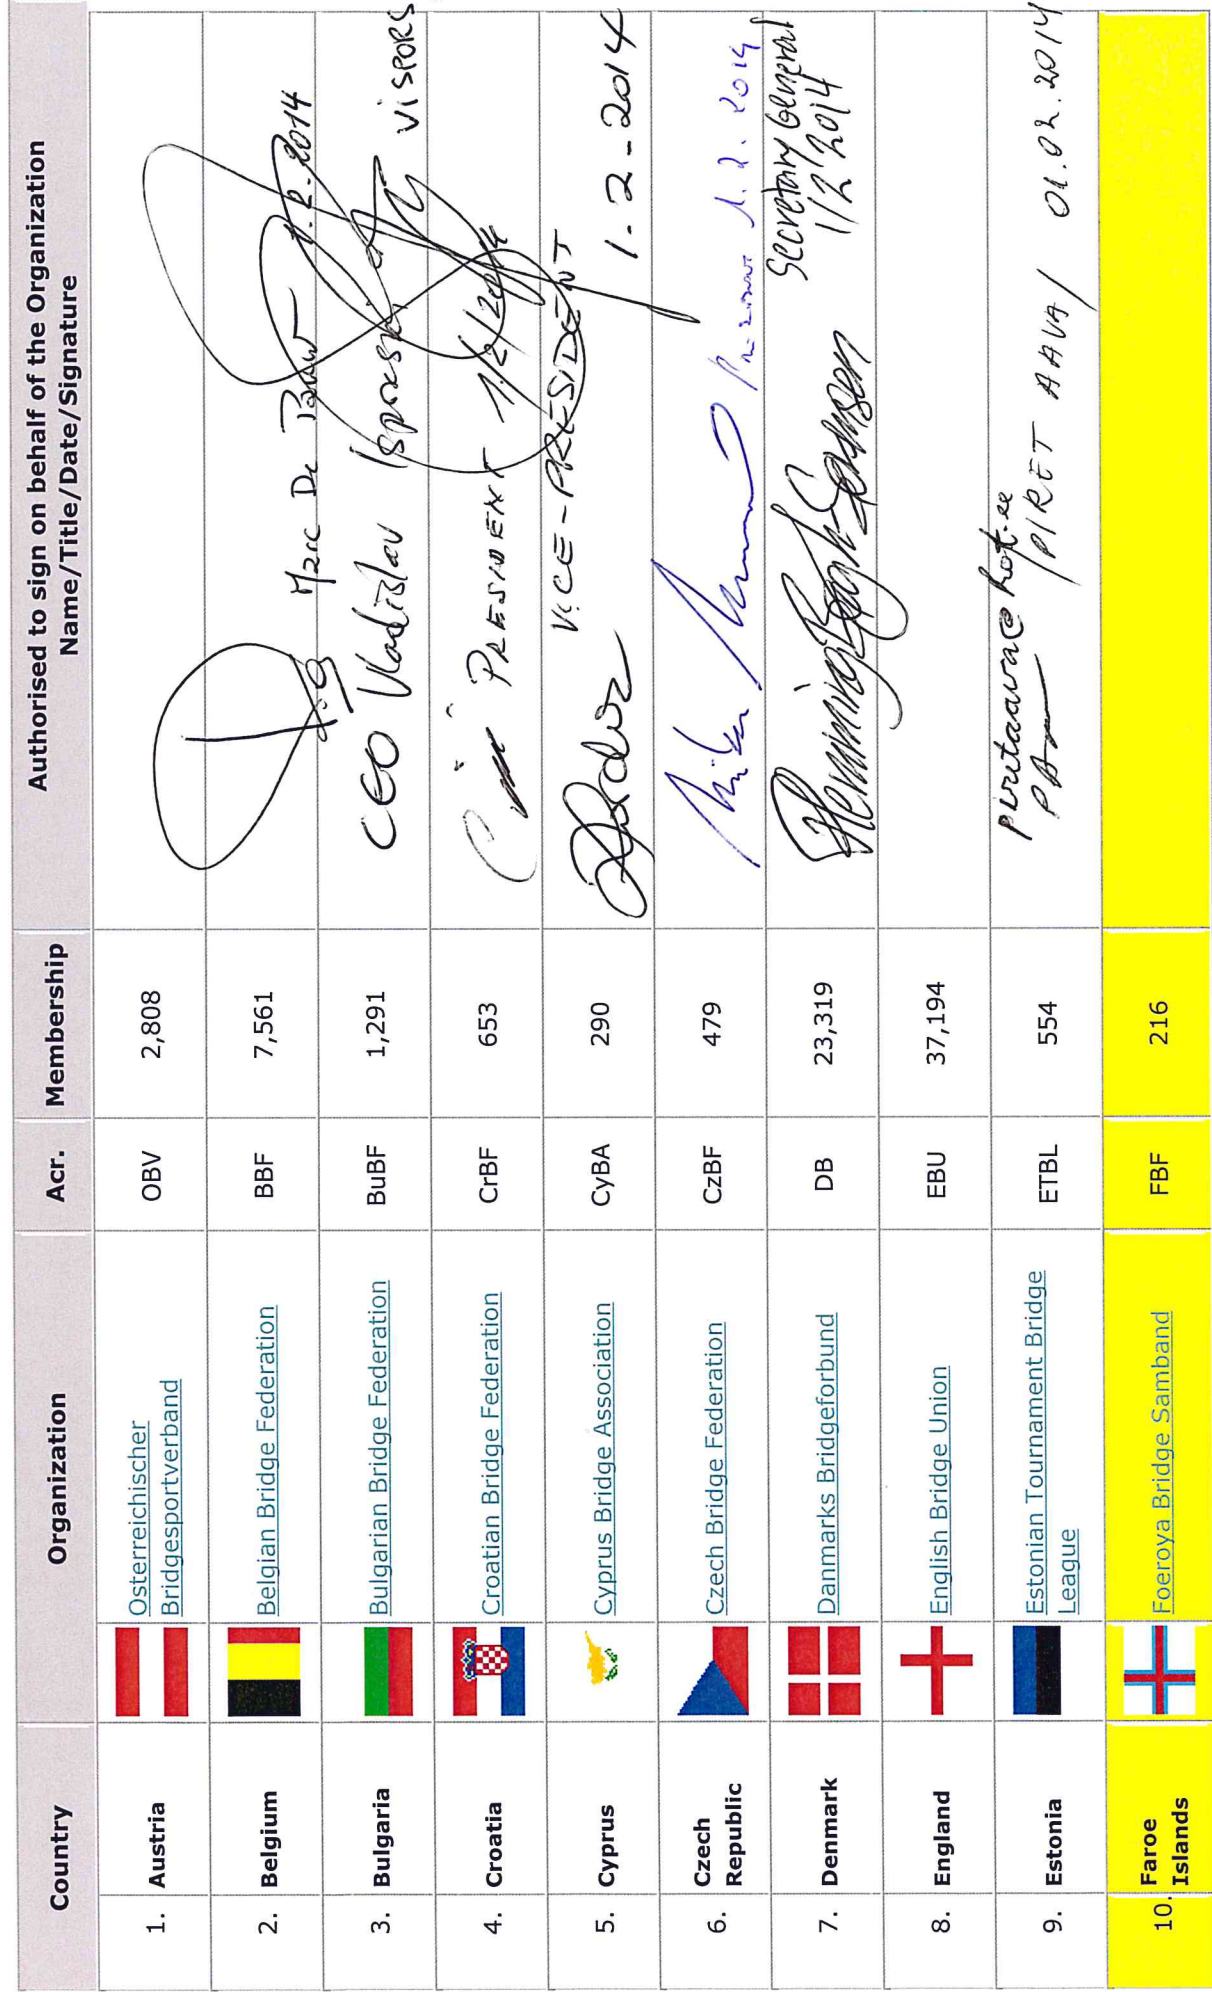 Country Organization Acr. Membership Authorised to sign on behalf of the Organization
Name/Title/Date/Signature
1. Austria Osterreichischer
Bridgesportverband OBV 2,808
2. Belgium Belgian Bridge Federation BBF 7,561 Marc De Pauw 1.2.2014
3. Bulgaria Bulgarian Bridge Federation BuBF 1,291 CEO Vladislav Isporski
4. Croatia Croatian Bridge Federation CrBF 653 PRESIDENT 1/2/2014
5. Cyprus Cyprus Bridge Association CyBA 290 VICE-PRESIDENT 1-2-2014
6. Czech
Republic Czech Bridge Federation CzBF 479 1.2.2014
7. Denmark Danmarks Bridgeforbund DB 23,319 Secretary General
1/2 2014
8. England English Bridge Union EBU 37,194
9. Estonia Estonian Tournament Bridge
League ETBL 554 /PIRET AAVA/ 01.02.2014
10. Faroe
Islands Foeroya Bridge Samband FBF 216